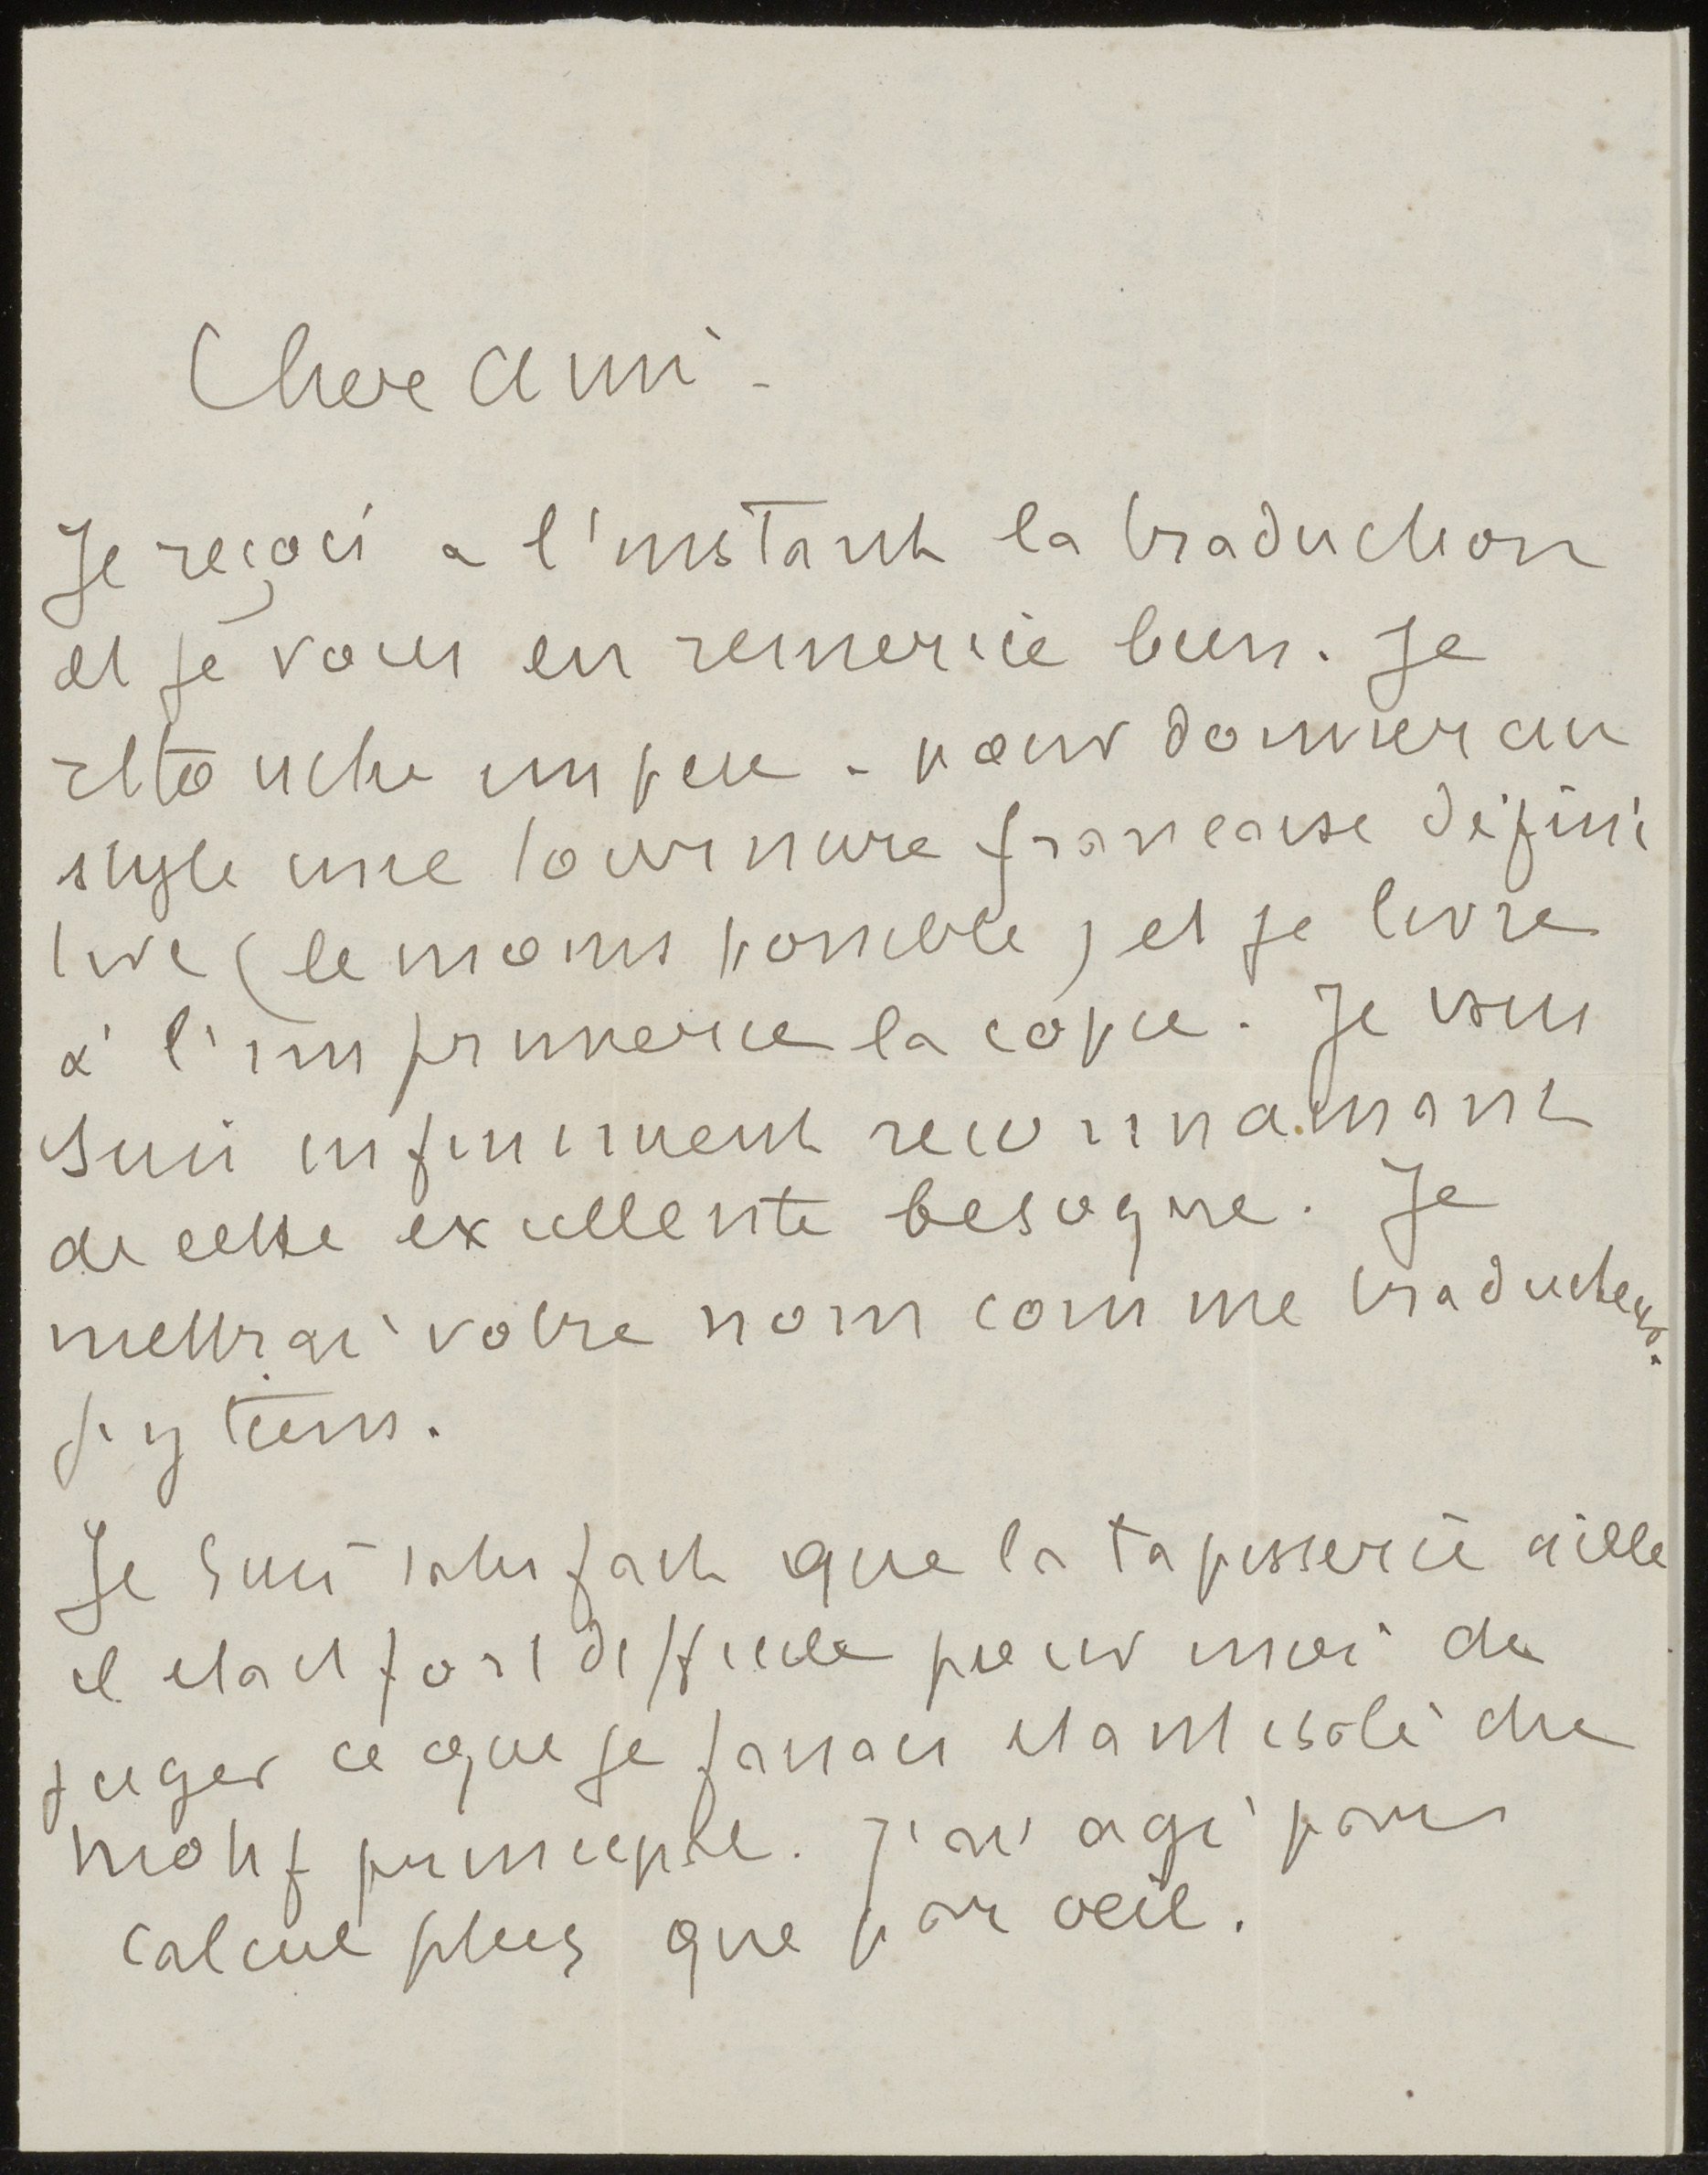 Chere Ami -
Je reçois a l'instant la traduction
et je vous en remercie bien. Je
retouche un peu - pour donner au
style une tournure francaise défini
tive (le moins possible) et je livre
à l'imprimerie la copie. Je vous
suis infiniment reconnaissant
de cette excellente besogne. Je
mettrai votre nom comme traducteur.
J'y tiens.
Je suis satisfait que la tapisserie aille
il etait fort difficile pour moi de
juger ce que je faisais etant isolé du
motif principale. J'ai agi par
calcul plus que par oeil.